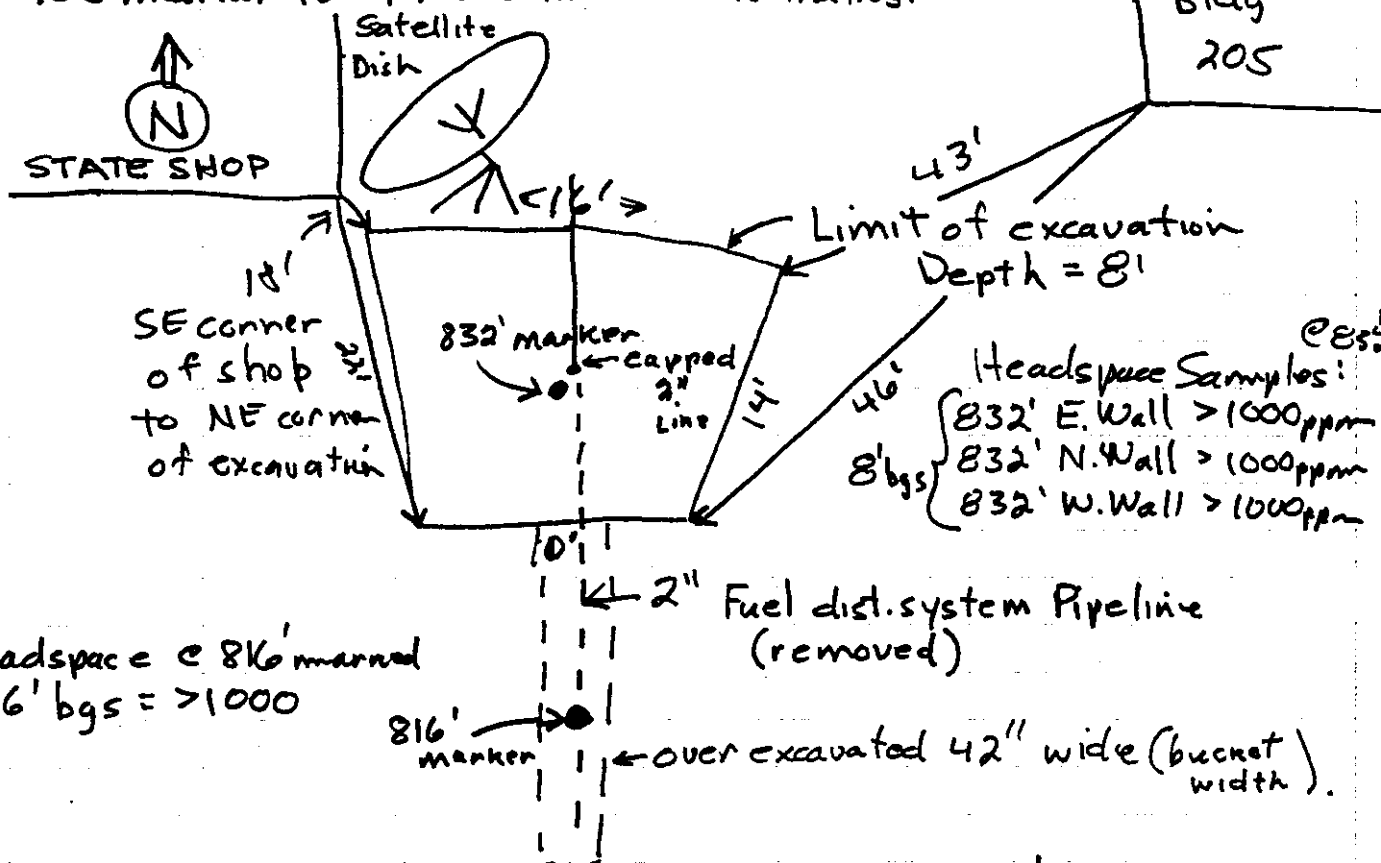 Bldg
205
Satellite
Dish
N
STATE SHOP
<16'>
43'
Limit of excavation
Depth = 8'
18'
SE corner
of shop
to NE corner
of excavation
832' marker
capped
2"
Line
14'
46'
Headspace Samples:
832' E. Wall > 1000ppm
8'bgs
832' N. Wall > 1000ppm
832' W. Wall > 1000ppm
10'
2" Fuel dist. system Pipeline
(removed)
adspace @ 816' marned
6' bgs = >1000
816'
marker
over excavated 42" wide (bucket
width).